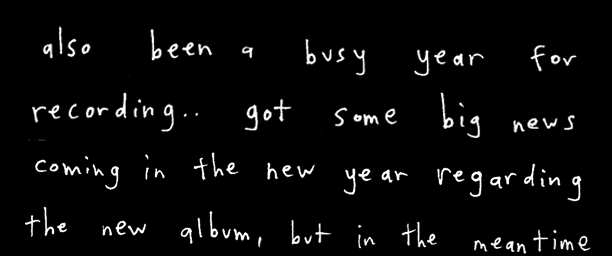 also been a busy year for
recording.. got some big news
coming in the new year regarding
the new album, but in the meantime